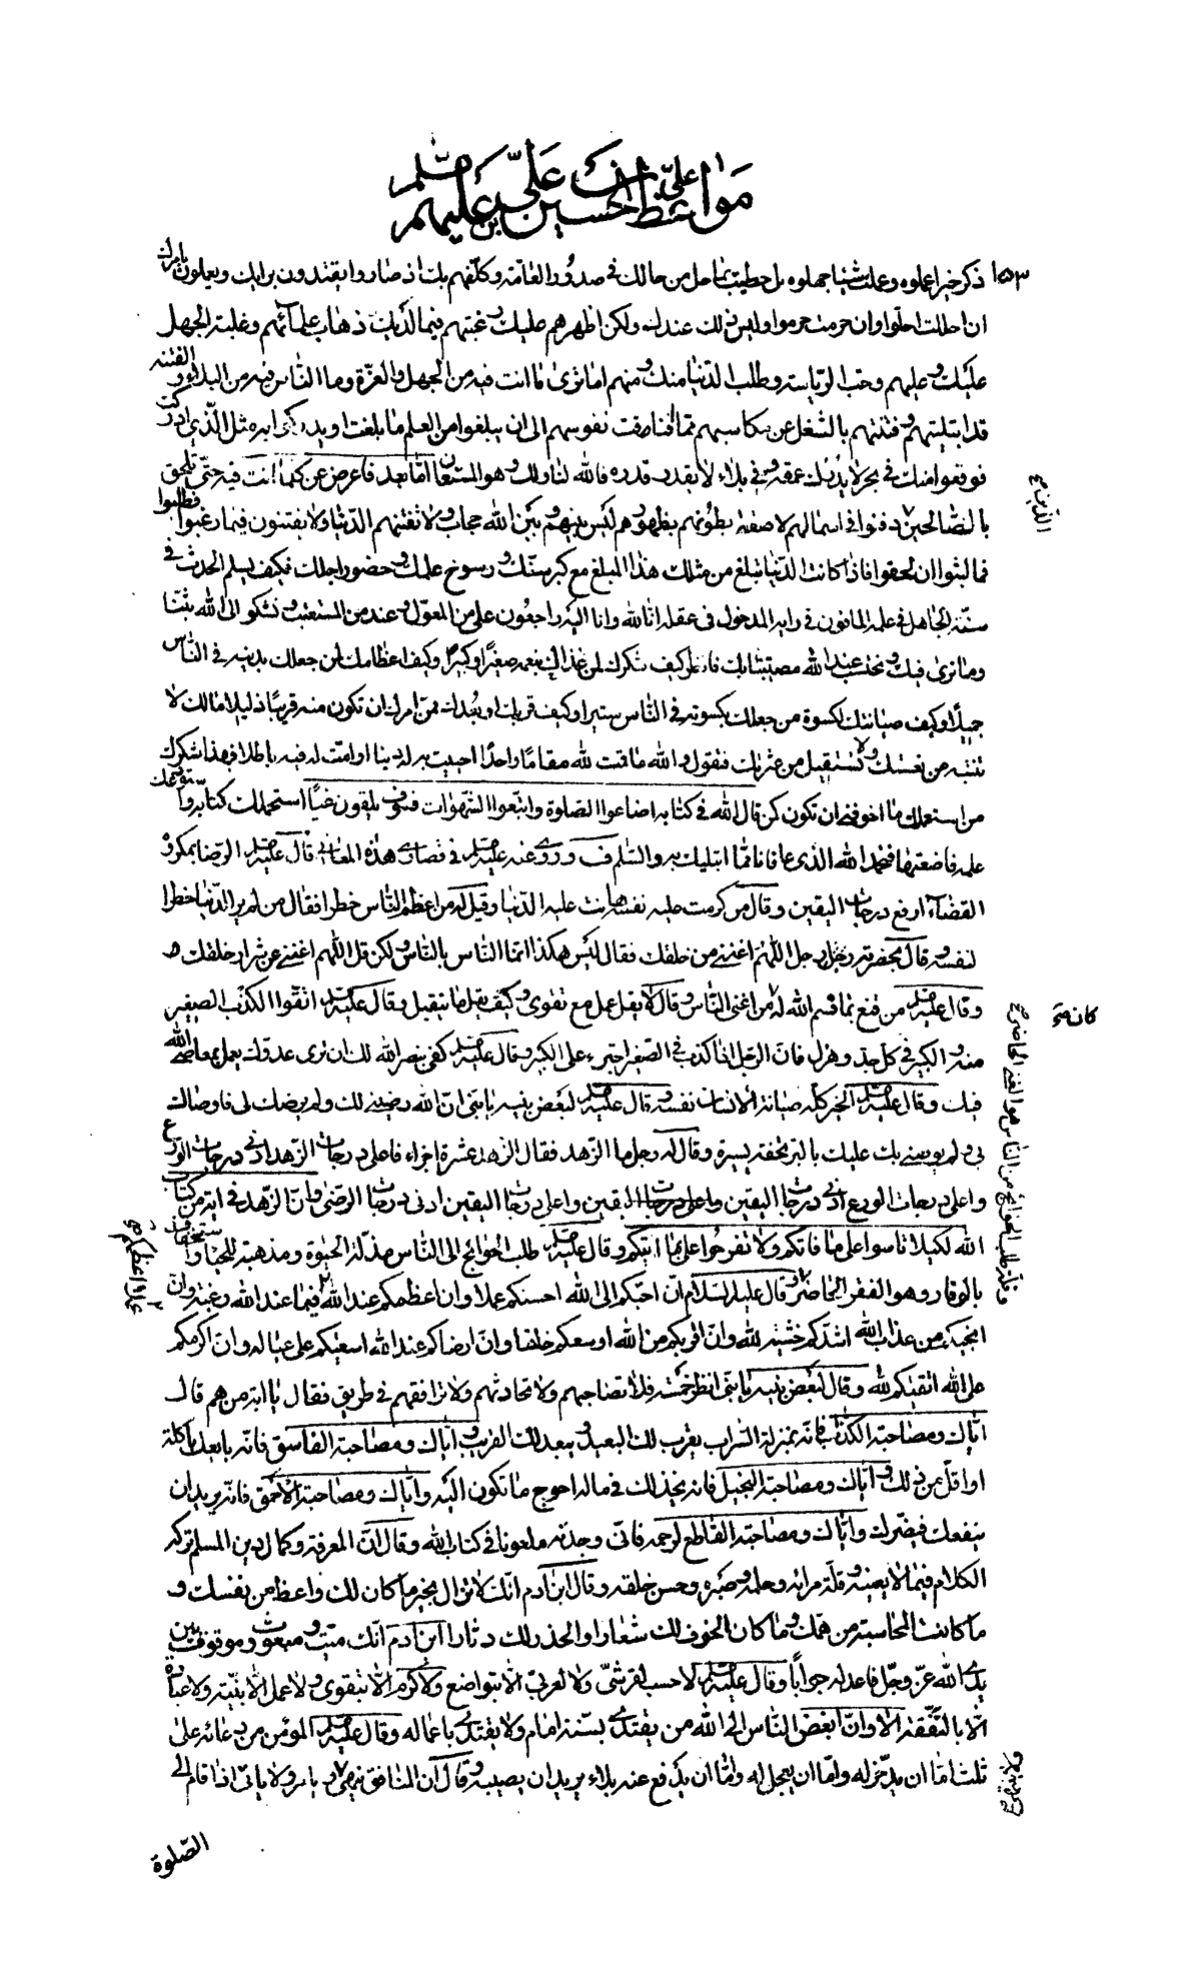 مواعظ علي بن الحسين بن علي عليهم
١٥٣
ذكر خيرا عملوه وعملت شيئا جهلوه بل حظيت بما حل من حالك في صدور العامة وكلفهم بك اذ صاروا يقتدون برايك ويعملون بامرك
ان احللت احلوا وان حرمت حرموا وليس ذلك عندك ولكن اظهرهم عليك رغبتهم فيما لديك ذهاب علمائهم وغلبة الجهل
عليك وعليهم وحب الرياسة وطلب الدنيا منك ومنهم اما ترى ما انت فيه من الجهل والغرة وما الناس فيه من البلاء والفتنة
قد ابتليتهم وفتنتهم بالشغل عن مكاسبهم مما فتاقت نفوسهم الى ان يبلغوا من العلم ما بلغت او يدركوا به مثل الذي ادركت
فوقعوا منك في بحر لا يدرك عمقه وفي بلاء لا يقدر قدره فالله لنا ولك وهو المستعان اما بعد فاعرض عن كلما انت فيه حتى تلحق
بالصالحين دفنوا في اسمالهم لاصقة بطونهم بظهورهم ليس بينهم وبين الله حجاب ولا تفتنهم الدنيا ولا يفتنون فيها رغبوا فطلبوا
فما لبثوا ان لحقوا فاذا كانت الدنيا تبلغ من مثلك هذا المبلغ مع كبر سنك ورسوخ علمك وحضور اجلك فكيف يسلم الحدث في
سنه الجاهل في علمه المافون في رايه المدخول في عقله انا لله وانا اليه راجعون على من المعول وعند من المستعتب نشكو الى الله بثنا
وما نرى فيك ونحتسب عند الله مصيبتنا بك فانظر كيف شكرك لمن غذاك بنعمه صغيرا وكبيرا وكيف اعظامك لمن جعلك بدينه في الناس
جميلا وكيف صيانتك لكسوة من جعلك بكسوته في الناس ستيرا وكيف قربك او بعدك ممن امرك ان تكون منه قريبا ذليلا مالك لا
تنتبه من نعستك ولا تستقيل من عثرتك فتقول والله ما قمت لله مقاما واحدا احييت به له دينا او امت له فيه باطلا فهذا شكرك
من استحملك ما اخوفني ان تكون كمن قال الله في كتابه اضاعوا الصلوة واتبعوا الشهوات فسوف يلقون غيا استحملك كتابه واستودعك
علمه فاضعتها فنحمد الله الذي عافانا مما ابتليك به والسلم وروي عنه عليه في قصار هذه المعاني قال عليه الرضا بمكروه
القضاء ارفع درجات اليقين وقال من كرمت عليه نفسه هانت عليه الدنيا وقيل له من اعظم الناس خطرا فقال من لم ير الدنيا خطرا
لنفسه وقال بحضرته رجل اللهم اغنني من خلقك فقال ليس هكذا انما الناس بالناس ولكن قل اللهم اغنني عن شرار خلقك
وقال عليه من قنع بما قسم الله له من اغنى الناس وقال لا يقل عمل مع تقوى وكيف يقل ما يتقبل وقال عليه اتقوا الكذب الصغير
منه والكبير في كل جد وهزل فان الرجل اذا كذب في الصغير اجترء على الكبير وقال عليه كفى بنصر الله لك ان ترى عدوك يعمل بمعاصي الله
فيك وقال عليه الخير كله صيانة الانسان نفسه وقال عليه لبعض بنيه يا بني ان الله رضيني لك ولم يرضك لي فاوصاك
بي ولم يوصني بك عليك بالبر تحفة يسيرة وقال له رجل ما الزهد فقال الزهد عشرة اجزاء فاعلى درجات الزهد ادنى درجات الورع
واعلى درجات الورع ادنى درجات اليقين واعلى درجات اليقين ادنى درجات الرضى وان الزهد في اية من كتاب
الله لكيلا تاسوا على ما فاتكم ولا تفرحوا على بما اتيكم وقال عليه طلب الحوائج الى الناس مذلة الحيوة ومذهبة للحياء واستخفاف
بالوقار وهو الفقر الحاضر وقال عليه السلام ان احبكم الى الله احسنكم عملا وان اعظمكم عند الله فيما عند الله رغبة وان
انجيكم من عذاب الله اشدكم خشية لله وان اقربكم من الله اوسعكم خلقا وان ارضاكم عند الله اسعيكم على عياله وان اكرمكم
على الله اتقيكم لله وقال لبعض بنيه يا بني انظر خمسة فلا تصاحبهم ولا تحادثهم ولا ترافقهم في طريق فقال يا ابه من هم قال
اياك ومصاحبة الكذاب فانه بمنزلة السراب يقرب لك البعيد ويبعد لك القريب واياك ومصاحبة الفاسق فانه بايعك باكلة
او اقل من ذلك واياك ومصاحبة البخيل فانه يخذلك في ماله احوج ما تكون اليه واياك ومصاحبة الاحمق فانه يريد ان
ينفعك فيضرك واياك ومصاحبة القاطع لرحمه فاني وجدته ملعونا في كتاب الله وقال ان المعرفة وكمال دين المسلم تركه
الكلام فيما لا يعنيه وقلة مرائه وحلمه وصبره وحسن خلقه وقال ابن ادم انك لا تزال بخير ما كان لك واعظ من نفسك و
ما كانت المحاسبة من همك وما كان الخوف لك شعارا والحذر لك دثارا ابن ادم انك ميت ومبعوث وموقوف بين
يدي الله عز وجل فاعد له جوابا وقال عليه لا حسب لقرشي ولا لعربي الا بتواضع ولا كرم الا بتقوى ولا عمل الا بنية ولا عبادة
الا بالتفقه الا وان ابغض الناس الى الله من يقتدي بسنة امام ولا يقتدي باعماله وقال عليه المؤمن من دعائه على
ثلث اما ان يدخر له واما ان يعجل له واما ان يدفع عنه بلاء يريد ان يصيبه وقال ان المنافق ينهى ويامر ولا ياتي اذا قام الى
الصلوة
الذين
كان
وقلة طلب الحوائج من الناس هو الغنى الحاضر
عملا اعظمكم
ولا ينتهي